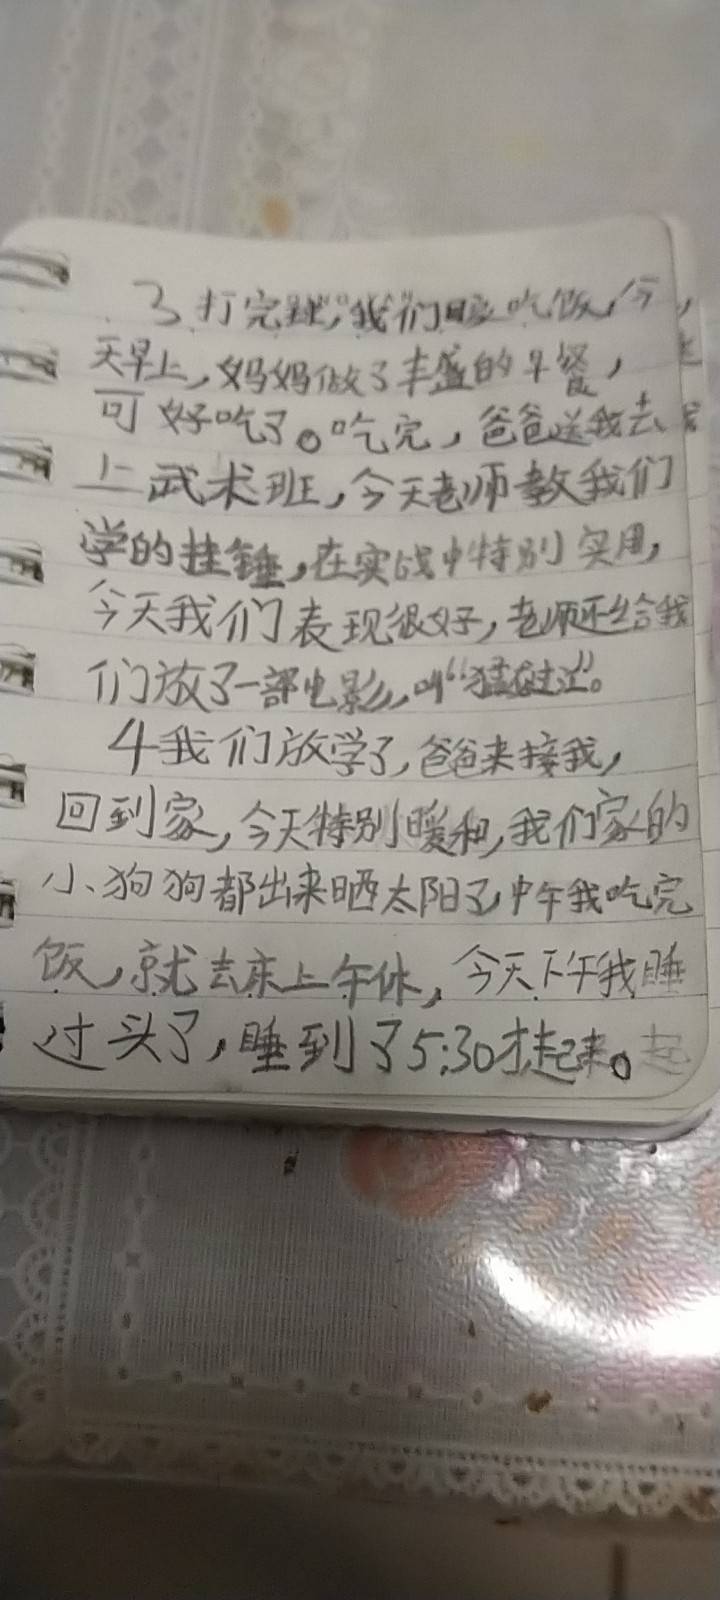 3 打完球,我们回家吃饭,今
天早上,妈妈做了丰盛的早餐,
可好吃了。吃完,爸爸送我去
上武术班,今天老师教我们
学的挂锤,在实战中特别实用,
今天我们表现很好,老师还给我
们放了一部电影,叫“猛龙过江”。
4我们放学了,爸爸来接我,
回到家,今天特别暖和,我们家的
小狗狗都出来晒太阳了,中午我吃完
饭,就去床上午休,今天下午我睡
过头了,睡到了5:30才起来。起